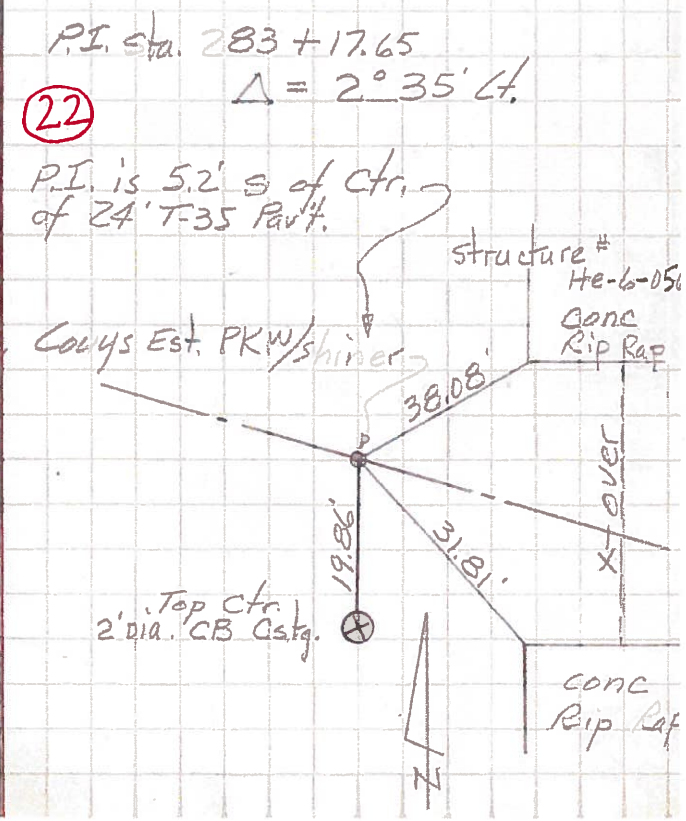 P.I. sta. 283 + 17.65
Δ = 2° 35' Lt.
22
P.I. is 5.2' S of Ctr.
of 24' T-35 Pav't.
structure #
He-6-056
conc
Rip Rap
Est. PKW/shiner
38.08'
P
X-over
19.86'
31.81'
Top Ctr.
2' Dia. CB Cstg.
conc
Rip Rap
N